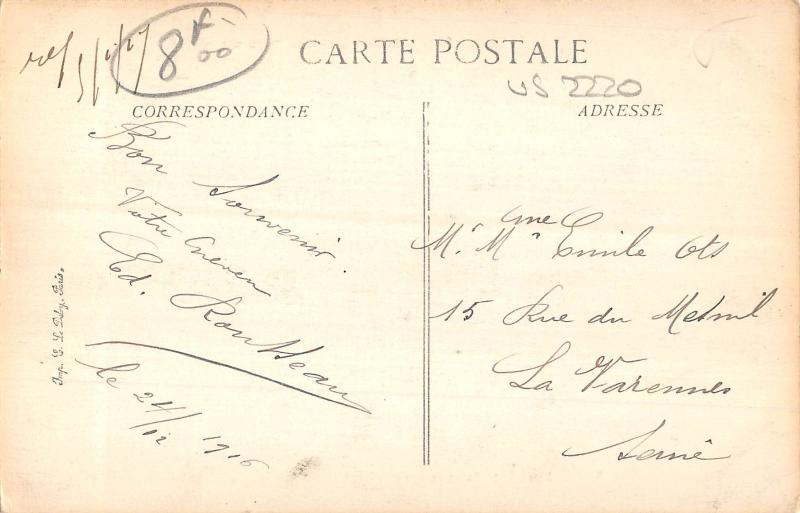 8f00
CARTE POSTALE
US 2220
CORRESPONDANCE
ADRESSE
Bon Souvenir.
Votre neveu
Ed. Rousseau
le 24/12 1916
Mr. Mme Emile Ots
15 Rue du Mesnil
La Varennes
Seine
Imp. E. Le Deley, Paris.